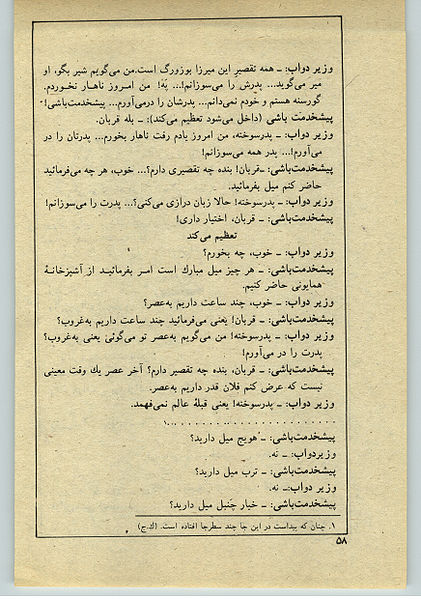 وزیر دواب: ـ همه تقصیر این میرزا بوزورگ است.من می‌گویم شیر بگو، او
میر می‌گوید... پدرش را می‌سوزانم!... په! من امروز ناهار نخوردم.
گورسنه هستم و خودم نمی‌دانم... پدرشان را درمی‌آورم... پیشخدمت‌باشی!
پیشخدمت باشی (داخل می‌شود تعظیم می‌کند): ـ بله قربان.
وزیر دواب: ـ پدرسوخته، من امروز یادم رفت ناهار بخورم... پدرتان را در
می‌آورم!... پدر همه می‌سوزانم!
پیشخدمت‌باشی: ـ قربان! بنده چه تقصیری دارم؟... خوب، هر چه می‌فرمائید
حاضر کنم میل بفرمائید.
وزیر دواب: ـ پدرسوخته! حالا زبان درازی می‌کنی؟... پدرت را می‌سوزانم!
پیشخدمت‌باشی: ـ قربان، اختیار داری!
تعظیم می‌کند
وزیر دواب: ـ خوب، چه بخورم؟
پیشخدمت‌باشی: ـ هر چیز میل مبارك است امر بفرمائید از آشپزخانهٔ
همایونی حاضر کنیم.
وزیر دواب: ـ خوب، چند ساعت داریم به‌عصر؟
پیشخدمت‌باشی: ـ قربان! یعنی می‌فرمائید چند ساعت داریم به‌غروب؟
وزیر دواب: ـ پدرسوخته! من می‌گویم به‌عصر تو می‌گوئی یعنی به‌غروب؟
پدرت را در می‌آورم!
پیشخدمت‌باشی: ـ قربان، بنده چه تقصیر دارم؟ آخر عصر یك وقت معینی
نیست که عرض کنم فلان قدر داریم به‌عصر.
وزیر دواب: ـ پدرسوخته! یعنی قبلهٔ عالم نمی‌فهمد.
. . . . . . . . . . . . . . . . . . . . . . . . . . .۱
پیشخدمت‌باشی: ـ هویج میل دارید؟
وزیردواب: ـ نه.
پیشخدمت‌باشی: ـ ترب میل دارید؟
وزیر دواب: ـ نه.
پیشخدمت‌باشی: ـ خیار چنبل میل دارید؟
۱. چنان که پیداست در این جا چند سطرجا افتاده است. (ك.ج)
۵۸